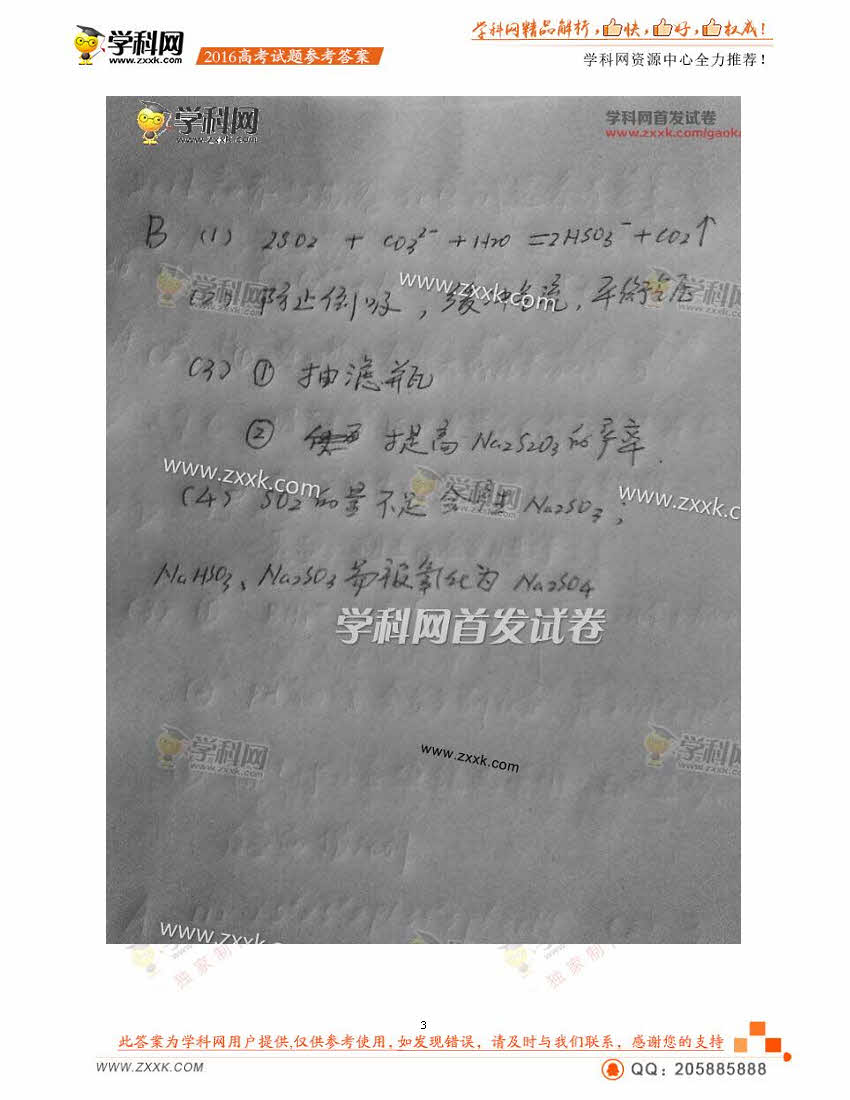 学科网
www.zxxk.com
2016高考试题参考答案
学科网精品解析,快,好,权威!
学科网资源中心全力推荐!
学科网
www.zxxk.com
学科网首发试卷
www.zxxk.com/gaoka
B (1) 2SO2 + CO3²⁻ + H2O = 2HSO3⁻ + CO2↑
(2) 防止倒吸, 缓冲气流, 平衡气压
学科网
www.zxxk.com
www.zxxk.com
(3) ① 抽滤瓶
② 提高Na2S2O3的产率.
www.zxxk.com
(4) SO2的量不足会产生Na2SO3;
www.zxxk.c
NaHSO3、Na2SO3易被氧化为Na2SO4
学科网首发试卷
学科网
www.zxxk.com
www.zxxk.com
学科网
www.zxxk.com
独家制
独家制
3
此答案为学科网用户提供,仅供参考使用,如发现错误,请及时与我们联系,感谢您的支持
WWW.ZXXK.COM
QQ: 205885888